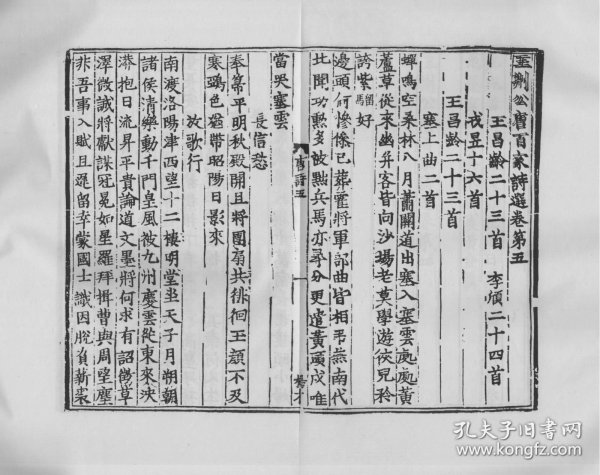 王荆公唐百家詩選卷第五
王昌齡二十三首 李頎二十四首
戎昱十六首
王昌齡二十三首
塞上曲二首
蟬鳴空桑林八月蕭關道出塞入塞雲處處黃
蘆草從來幽并客皆向沙場老莫學遊俠兒矜
誇紫騮好
邊頭何慘慘已葬霍將軍部曲皆相弔燕南代
北聞功勲多被黜兵馬亦尋分更遣黃龍戍唯
當哭塞雲
長信愁
奉箒平明秋殿開且將團扇共徘徊玉顏不及
寒鵶色猶帶昭陽日影來
放歌行
南渡洛陽津西望十二樓明堂坐天子月朔朝
諸侯清樂動千門皇風被九州慶雲從東來泱
漭抱日流昇平貴論道文墨將何求有詔徵草
澤微誠將獻謀冠冕如星羅拜揖曹與周望塵
非吾事入賦且遲留幸蒙國士識因脫負薪裘
唐詩五
孔夫子旧书网